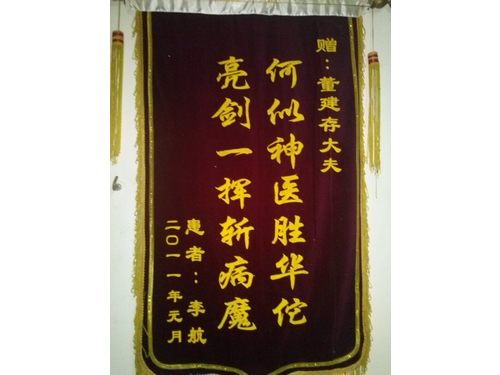 赠：董建存大夫
何似神医胜华佗
亮剑一挥斩病魔
患者：李航
二〇一一年元月